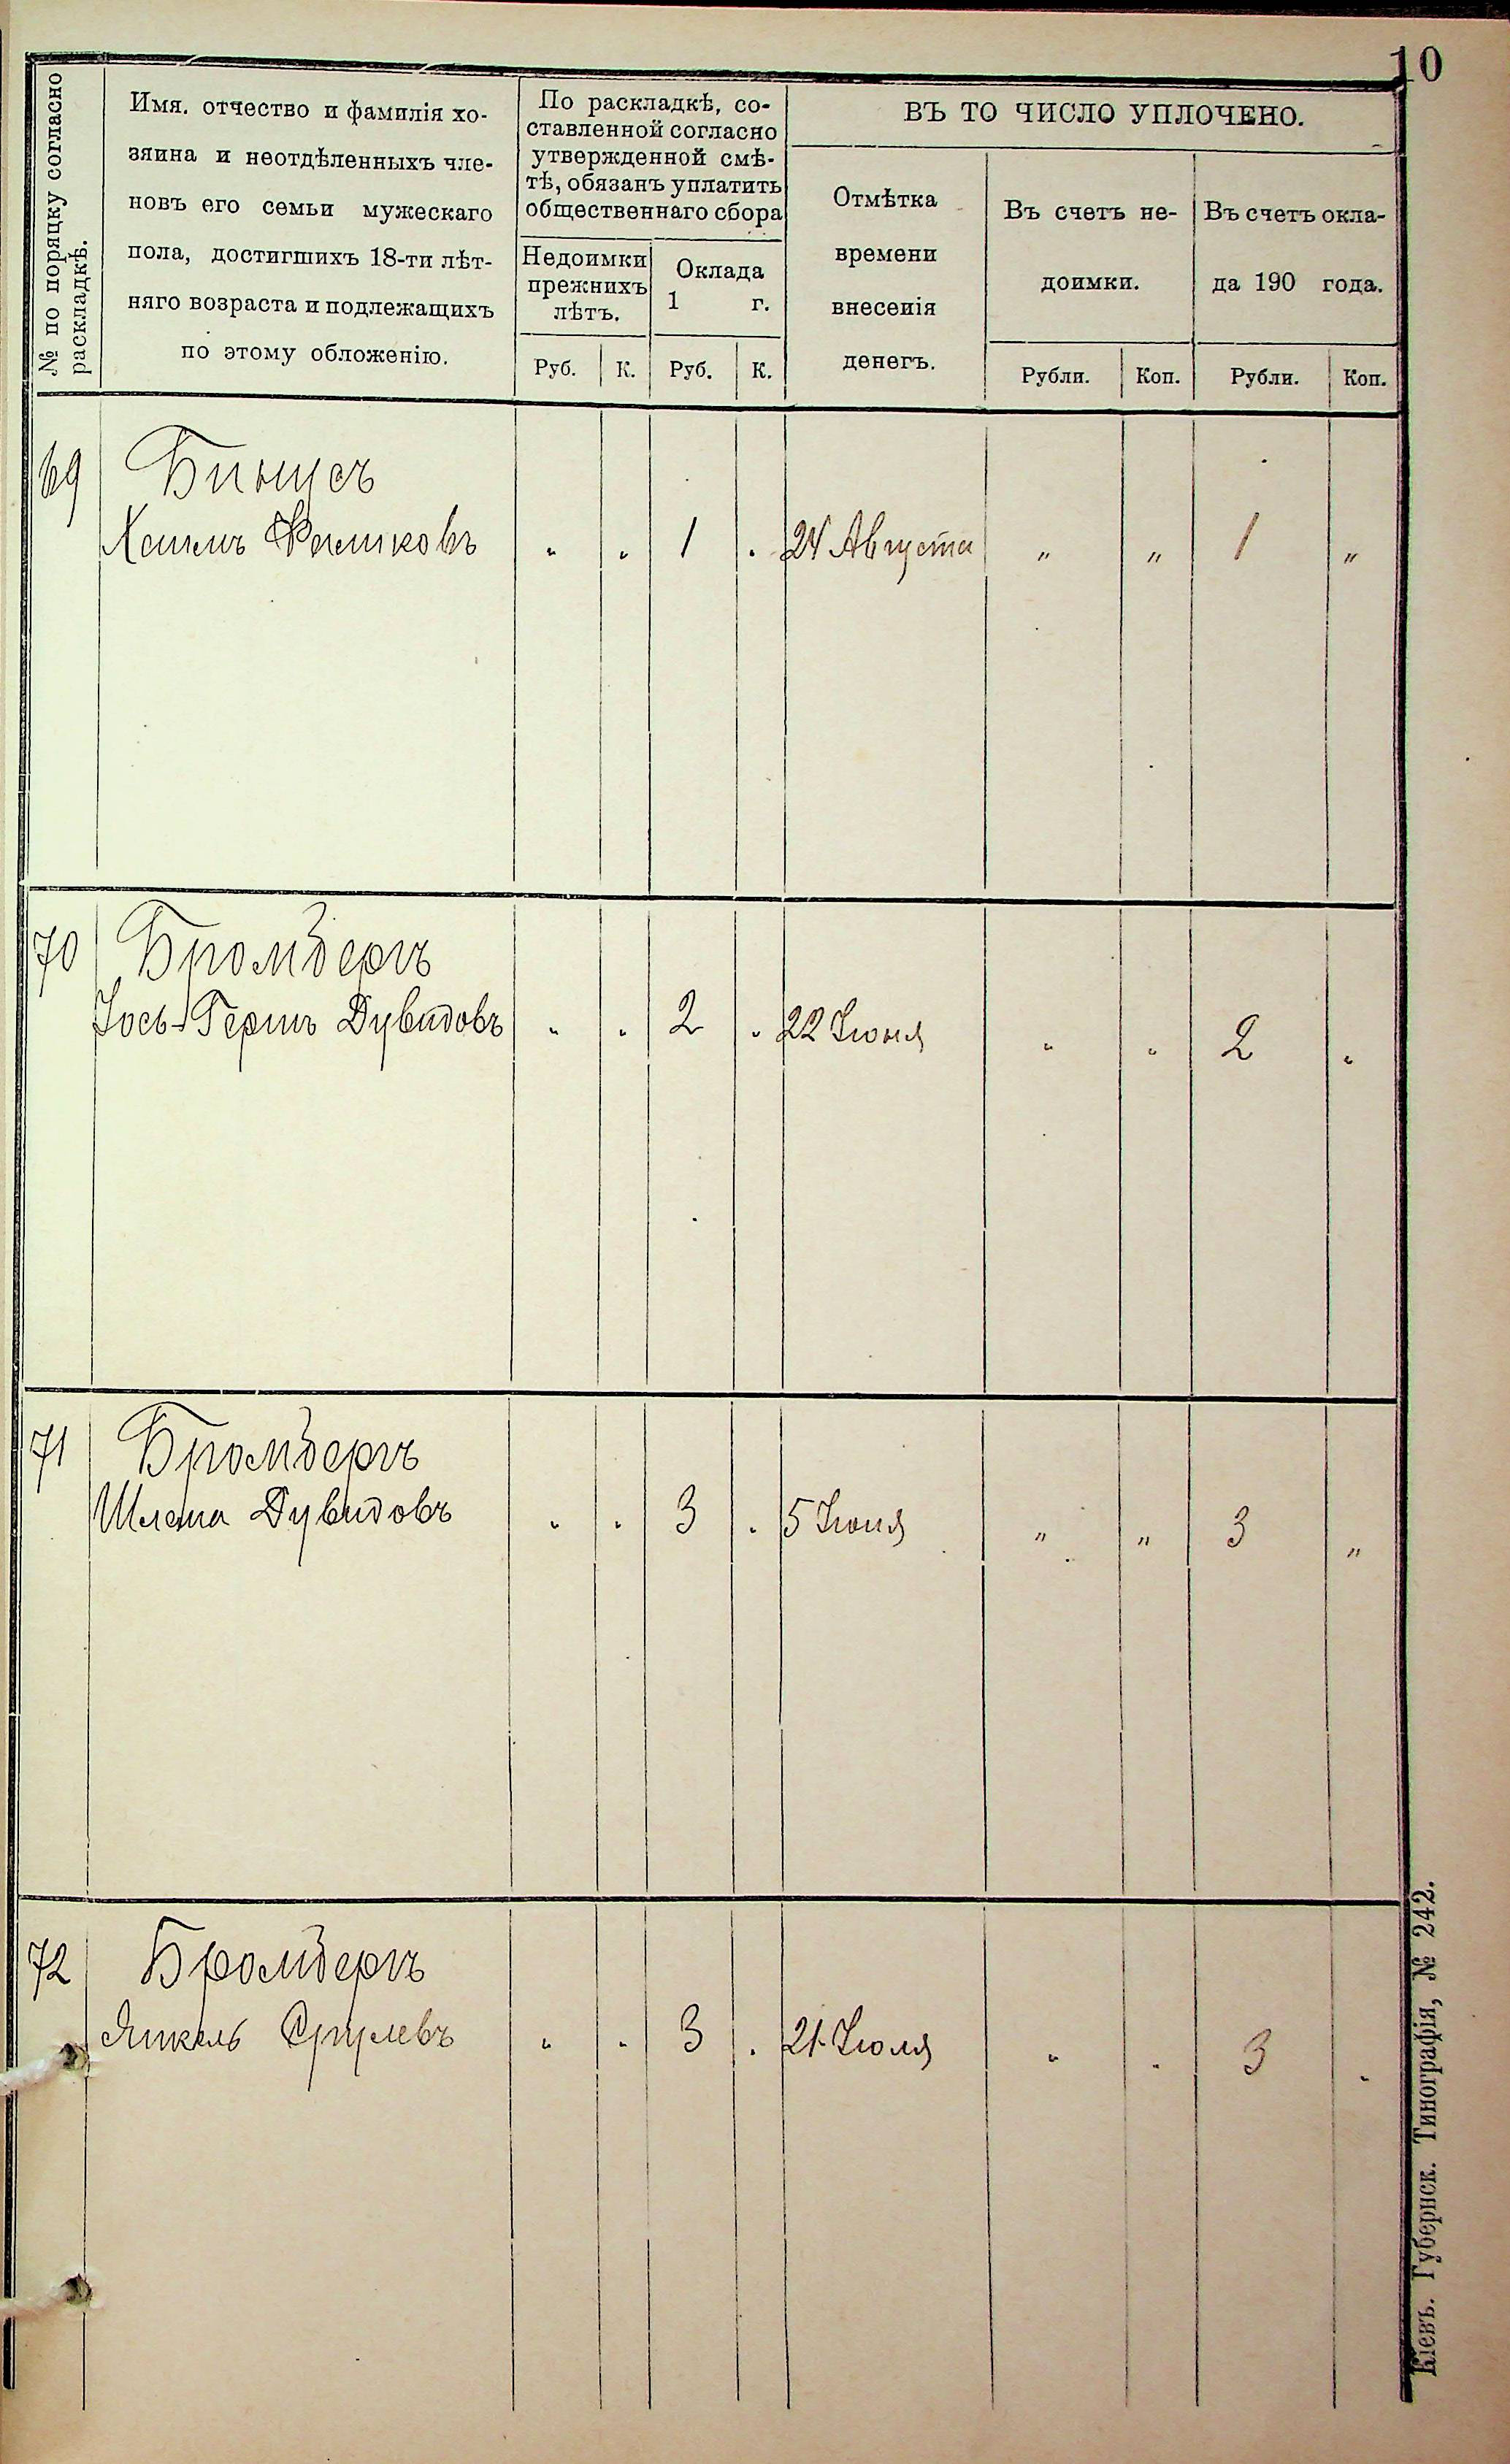 10
№ по поряцку согласно
раскладкѣ.
Имя. отчество и фамилія хо-
зяина и неотдѣленныхъ чле-
новъ его семьи мужескаго
пола, достигшихъ 18-ти лѣт-
няго возраста и подлежащихъ
по этому обложенію.
По раскладкѣ, со-
ставленной согласно
утвержденной смѣ-
тѣ, обязанъ уплатить
общественнаго сбора
Недоимки
прежнихъ
лѣтъ.
Оклада
1 г.
Руб. К. Руб. К.
ВЪ ТО ЧИСЛО УПЛОЧЕНО.
Отмѣтка
времени
внесенія
денегъ.
Въ счетъ не-
доимки.
Въ счетъ окла-
да 190 года.
Рубли. Коп. Рубли. Коп.
69
Хаимъ " " 1 " 24 Августа " " 1 "
70 Бромбергъ
Іось-Гершъ Дувидовъ " " 2 " 22 Іюня " " 2 "
71 Бромбергъ
Шлема Дувидовъ " " 3 " 5 Іюня " " 3 "
72 Бромбергъ
Янкель Срулевъ " " 3 " 21 Іюля " " 3 "
Кіевъ. Губернск. Типографія, № 242.